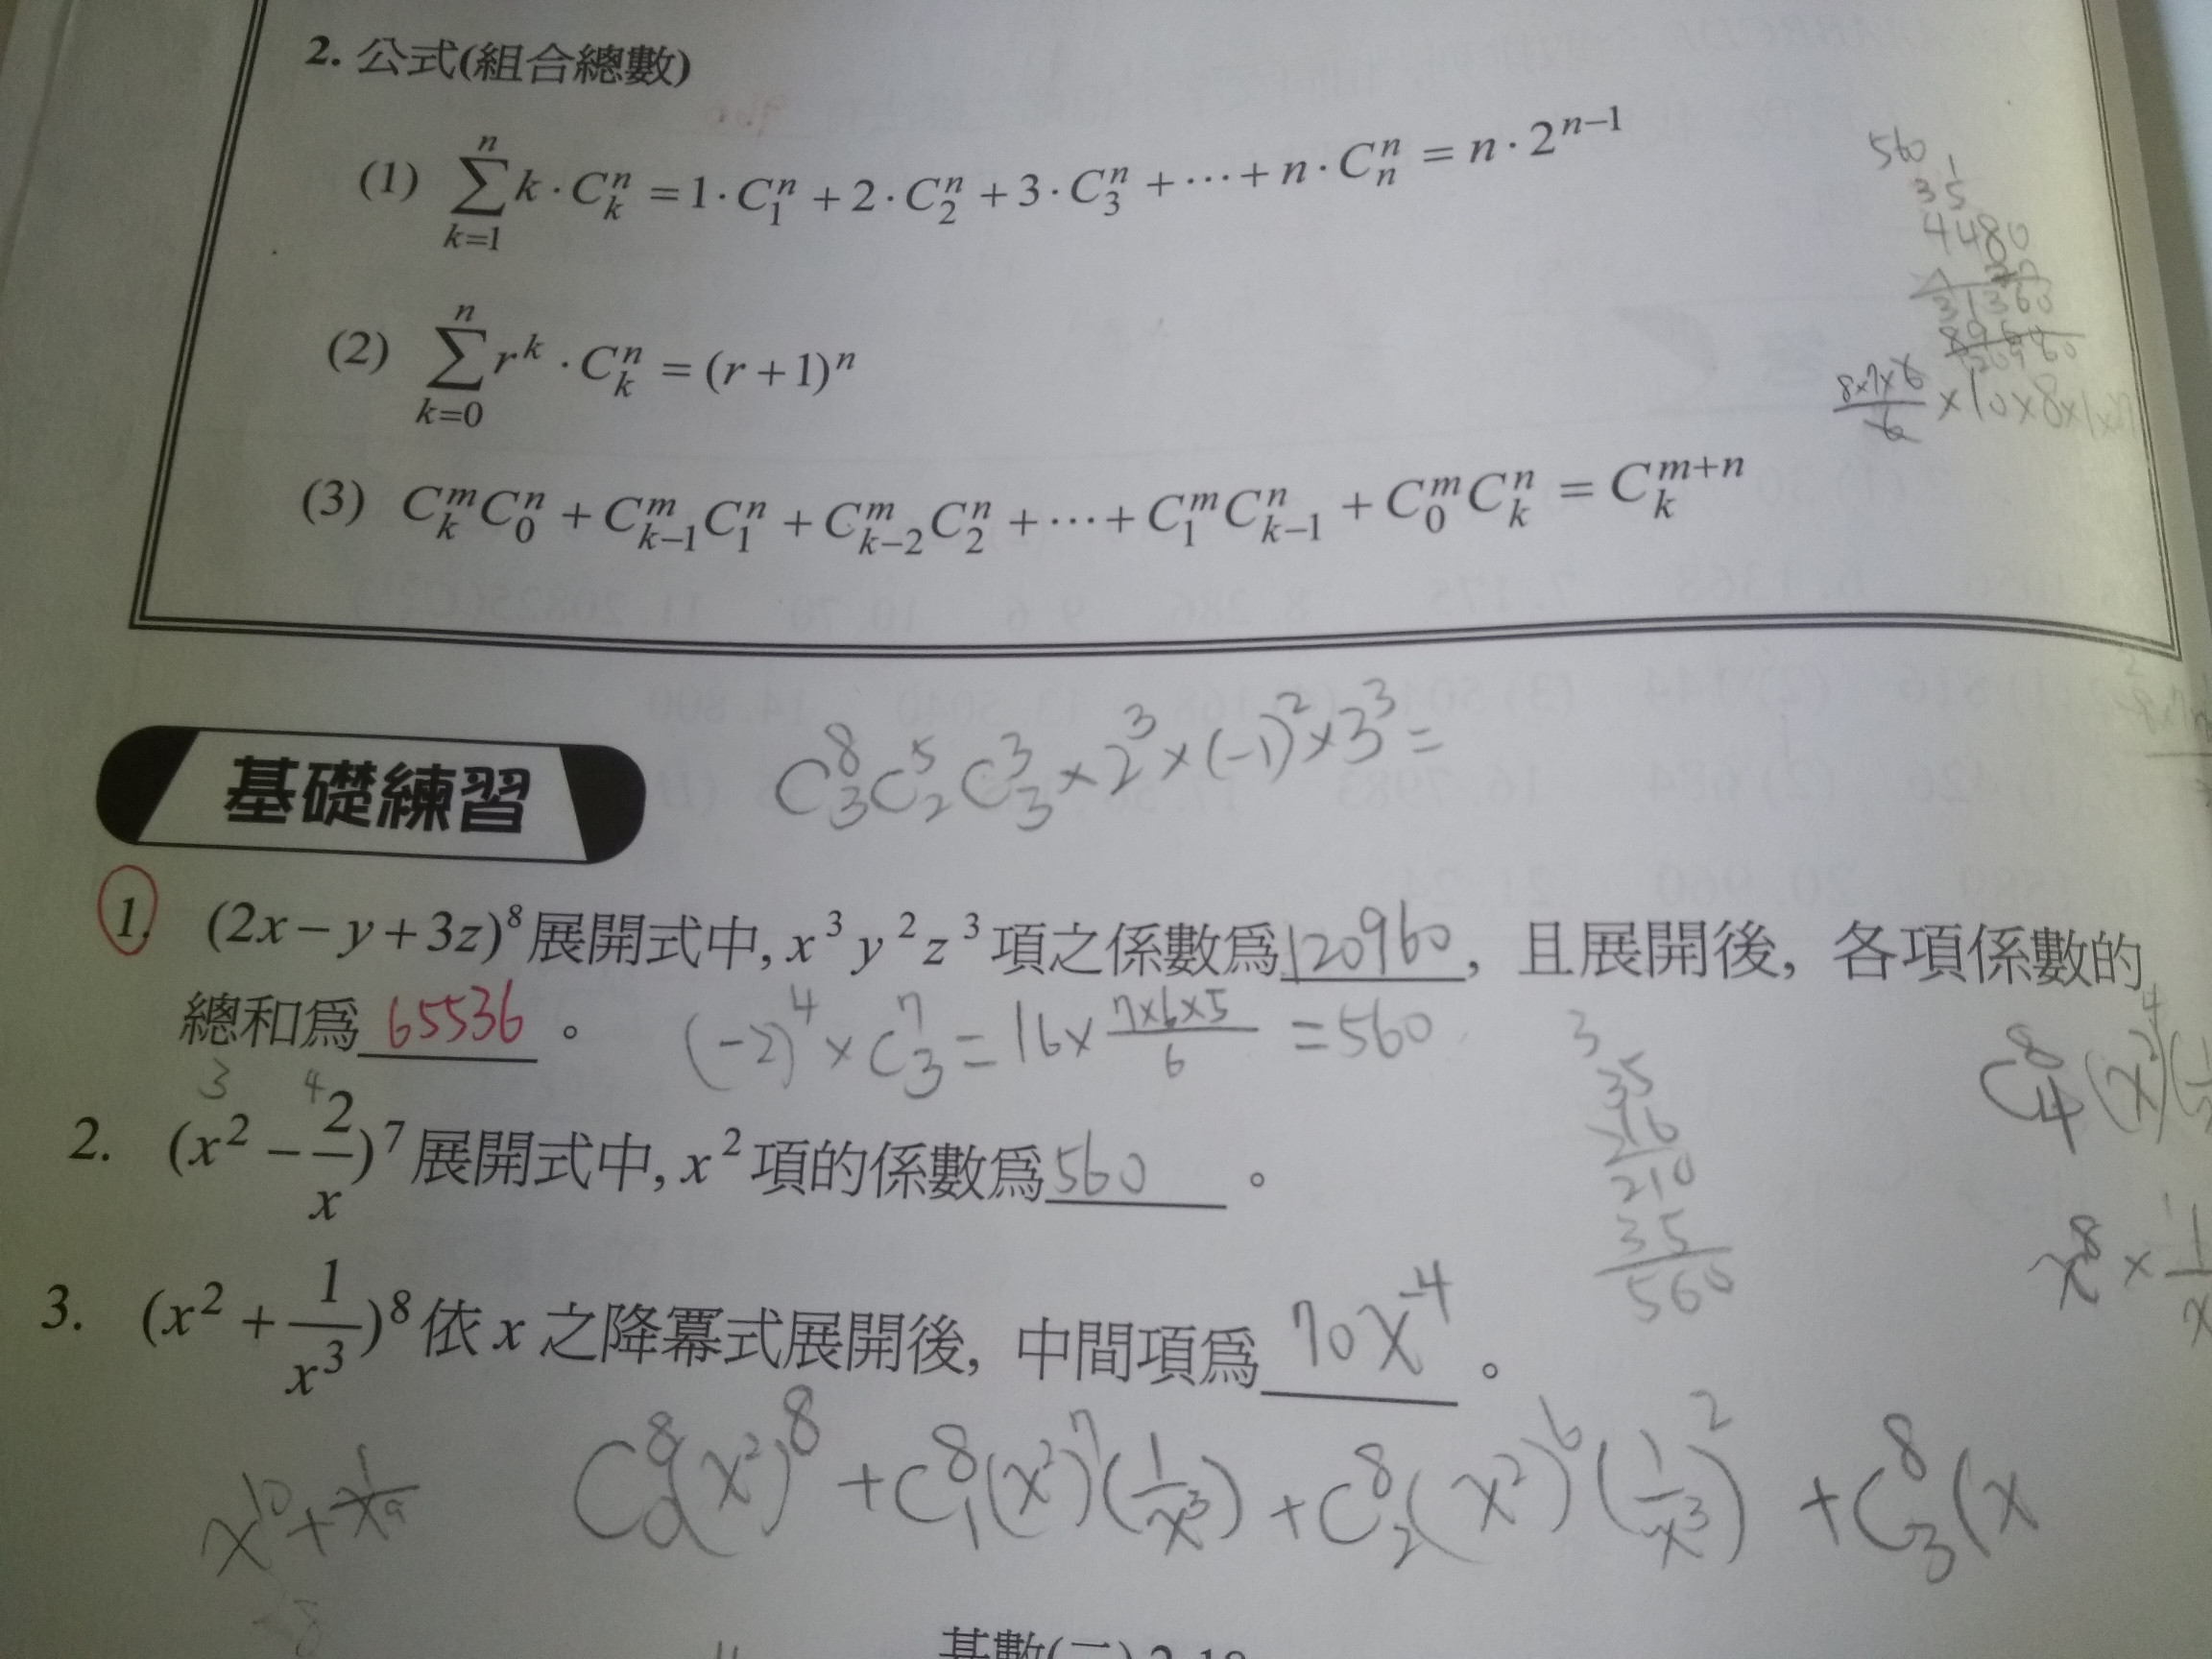 2. 公式(組合總數)
(1) \sum_{k=1}^{n} k · C_k^n = 1 · C_1^n + 2 · C_2^n + 3 · C_3^n + ⋯ + n · C_n^n = n · 2^{n-1}
560
3 5
4480
31360
(2) \sum_{k=0}^{n} r^k · C_k^n = (r+1)^n
120960
\frac{8×7×6}{6} ×10×8×1×
(3) C_k^m C_0^n + C_{k-1}^m C_1^n + C_{k-2}^m C_2^n + ⋯ + C_1^m C_{k-1}^n + C_0^m C_k^n = C_k^{m+n}
C_3^8 C_2^5 C_3^3 × 2^3 × (-1)^2 × 3^3 =
基礎練習
1. (2x − y + 3z)^8 展開式中, x^3 y^2 z^3 項之係數為 120960, 且展開後, 各項係數的
總和為 65536。
(-2)^4 × C_3^7 = 16 × \frac{7×6×5}{6} = 560
3
35
16
210
35
560
C_4^8 (x^2)^4
3 4
2. (x^2 − \frac{2}{x})^7 展開式中, x^2 項的係數為 560。
x^8 ×
3. (x^2 + \frac{1}{x^3})^8 依 x 之降冪式展開後, 中間項為 70x^{-4}。
C_0^8 (x^2)^8 + C_1^8 (x^2)^7 (\frac{1}{x^3}) + C_2^8 (x^2)^6 (\frac{1}{x^3})^2 + C_3^8 (x
x^{10} + \frac{1}{x^9}
基數(二) 2-18